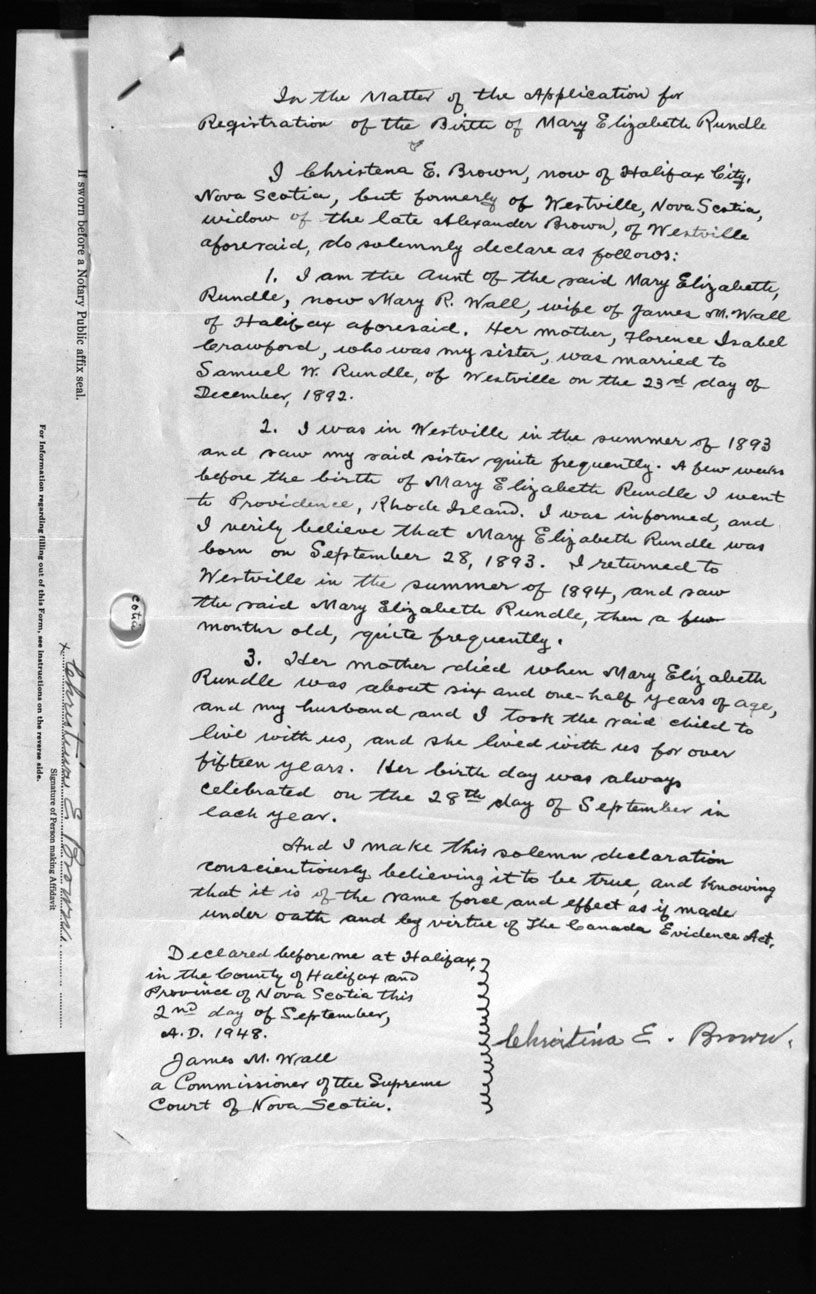 In the Matter of the Application for
Registration of the Birth of Mary Elizabeth Rundle
I Christena E. Brown, now of Halifax City,
Nova Scotia, but formerly of Westville, Nova Scotia,
widow of the late Alexander Brown, of Westville
aforesaid, do solemnly declare as follows:
1. I am the Aunt of the said Mary Elizabeth,
Rundle, now Mary R. Wall, wife of James M. Wall
of Halifax aforesaid. Her mother, Florence Isabel
Crawford, who was my sister, was married to
Samuel W. Rundle, of Westville on the 23rd day of
December, 1892.
2. I was in Westville in the summer of 1893
and saw my said sister quite frequently. A few weeks
before the birth of Mary Elizabeth Rundle I went
to Providence, Rhode Island. I was informed, and
I verily believe that Mary Elizabeth Rundle was
born on September 28, 1893. I returned to
Westville in the summer of 1894, and saw
the said Mary Elizabeth Rundle, then a few
months old, quite frequently.
3. Her mother died when Mary Elizabeth
Rundle was about six and one-half years of age,
and my husband and I took the said child to
live with us, and she lived with us for over
fifteen years. Her birth day was always
celebrated on the 28th day of September in
each year.
And I make this solemn declaration
conscientiously believing it to be true, and knowing
that it is of the same force and effect as if made
under oath and by virtue of The Canada Evidence Act.
Declared before me at Halifax,
in the County of Halifax and
Province of Nova Scotia this
2nd day of September,
A.D. 1948.
James M. Wall
a Commissioner of the Supreme
Court of Nova Scotia.
Christina E. Brown.
If sworn before a Notary Public affix seal.
For Information regarding filling out of this Form, see instructions on the reverse side.
x Christina E Brown.
Signature of Person making Affidavit
cotia